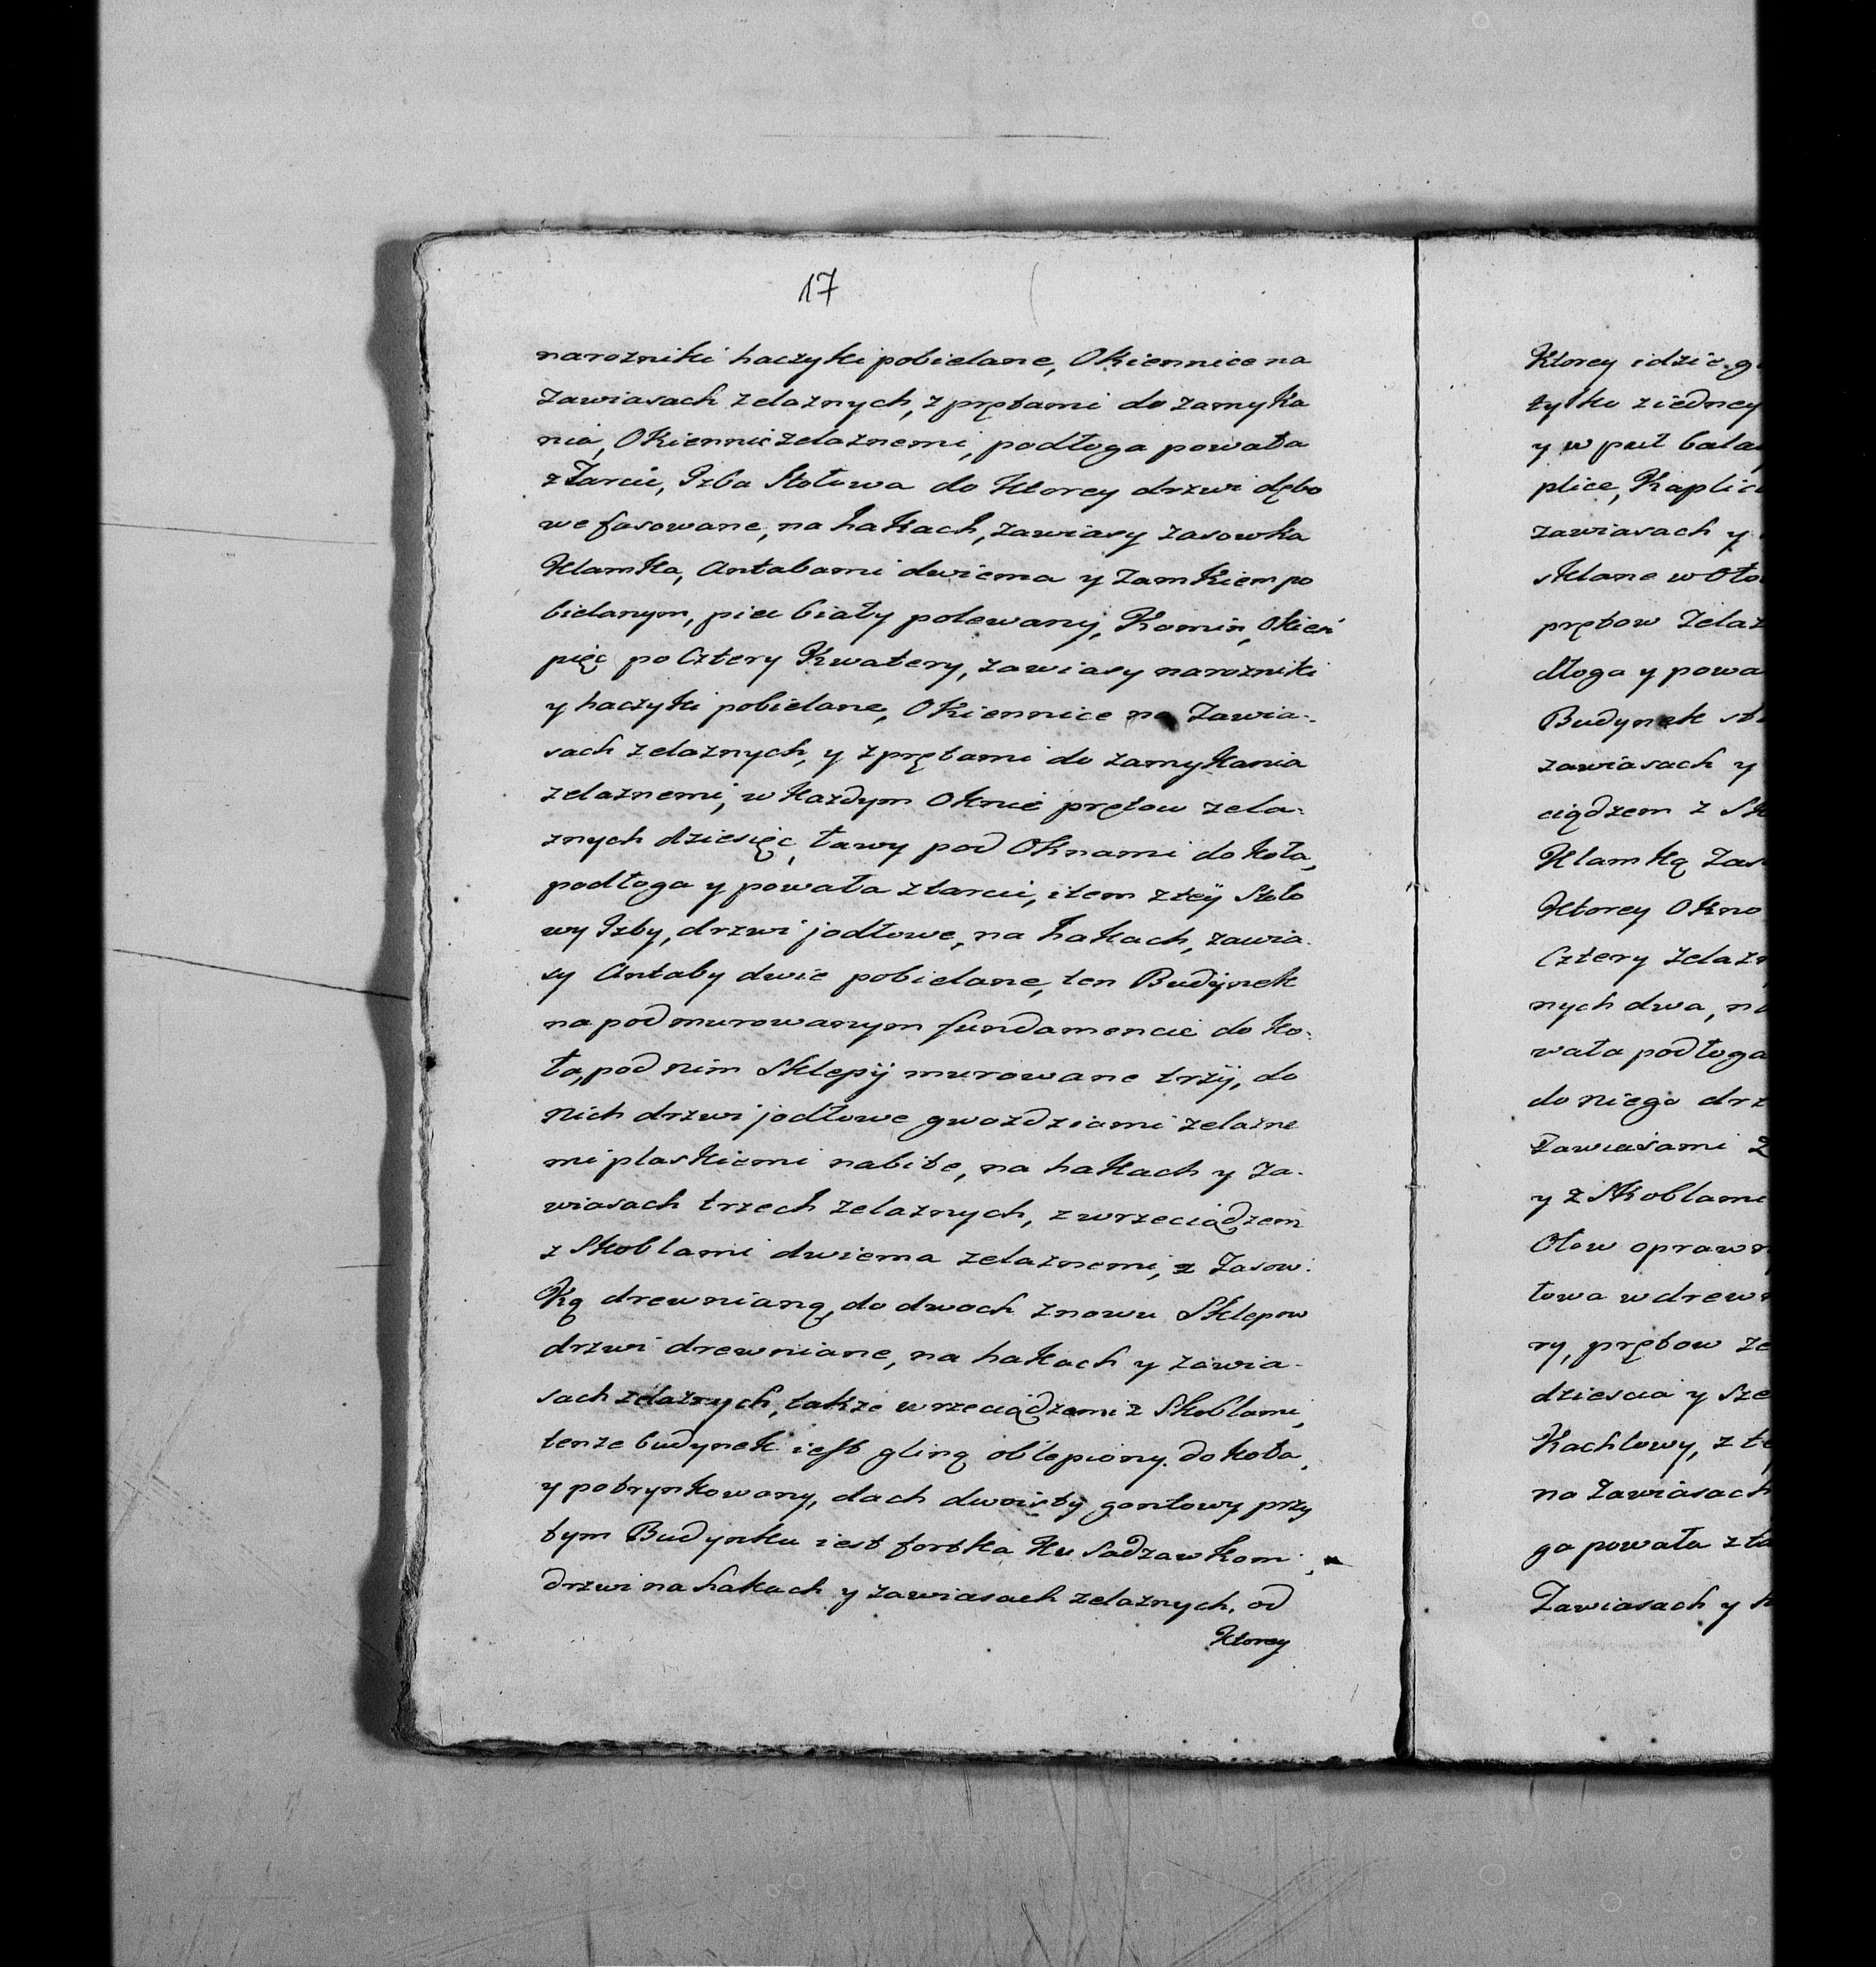 17
narozniki haczyki pobielane, Okiennice na
zawiasach zelaznych, z prętami do zamyka
nia, Okiennic zelaznemi, podłoga powała
z Tarcic, Izba Stołowa do Ktorey drzwi dębo
we fasowane, na hakach, zawiasy zasowka
Klamka, Antabami dwiema y zamkiem po
bielanym, piec biały polewany, Komin, Okien
pięc po Cztery Kwatery, zawiasy narozniki
y haczyki pobielane, Okiennice na Zawia-
sach zelaznych, y z prętami do zamykania
zelaznemi, w Kazdym Oknie prętow zela-
znych dziesięc, ławy pod Oknami do koła,
podłoga y powała z tarcic, item z tey Stoło
wy Izby, drzwi jodłowe, na hakach, zawia-
sy Antaby dwie pobielane, ten Budynek
na podmurowanym fundamencie do ko-
ła, pod nim Sklepy murowane trzy, do
nich drzwi jodłowe gwozdziami zelazne
mi płaskiemi nabite, na hakach y za-
wiasach trzech zelaznych, z wrzeciądzem
z Skoblami dwiema zelaznemi, z Zasow-
Ką drewnianą, do dwoch znowu Sklepow
drzwi drewniane, na hakach y zawia-
sach zelaznych, takze wrzeciądzami z Skoblami,
tenze budynek iest gliną oblepiony do koła,
y potrynkowany, dach dwoisty gontowy, przy
tym Budynku iest fortka Ku Sadzawkom,
drzwi na hakach y zawiasach zelaznych, od
Ktorey
Ktorey idzie
tylko ziedney
y w puł
plice,
zawiasach y
sklane w
prętow
dłoga y
Budynek
zawiasach y
ciądzem z
Klamką
Ktorey Okno
Cztery
nych dwa,
wała podłoga
do niego
Zawiasami
y z Skoblami
Ołow
towa w
ry, prętow
dziescia y
Kachlowy, z
na Zawiasach
ga powała z
Zawiasach y